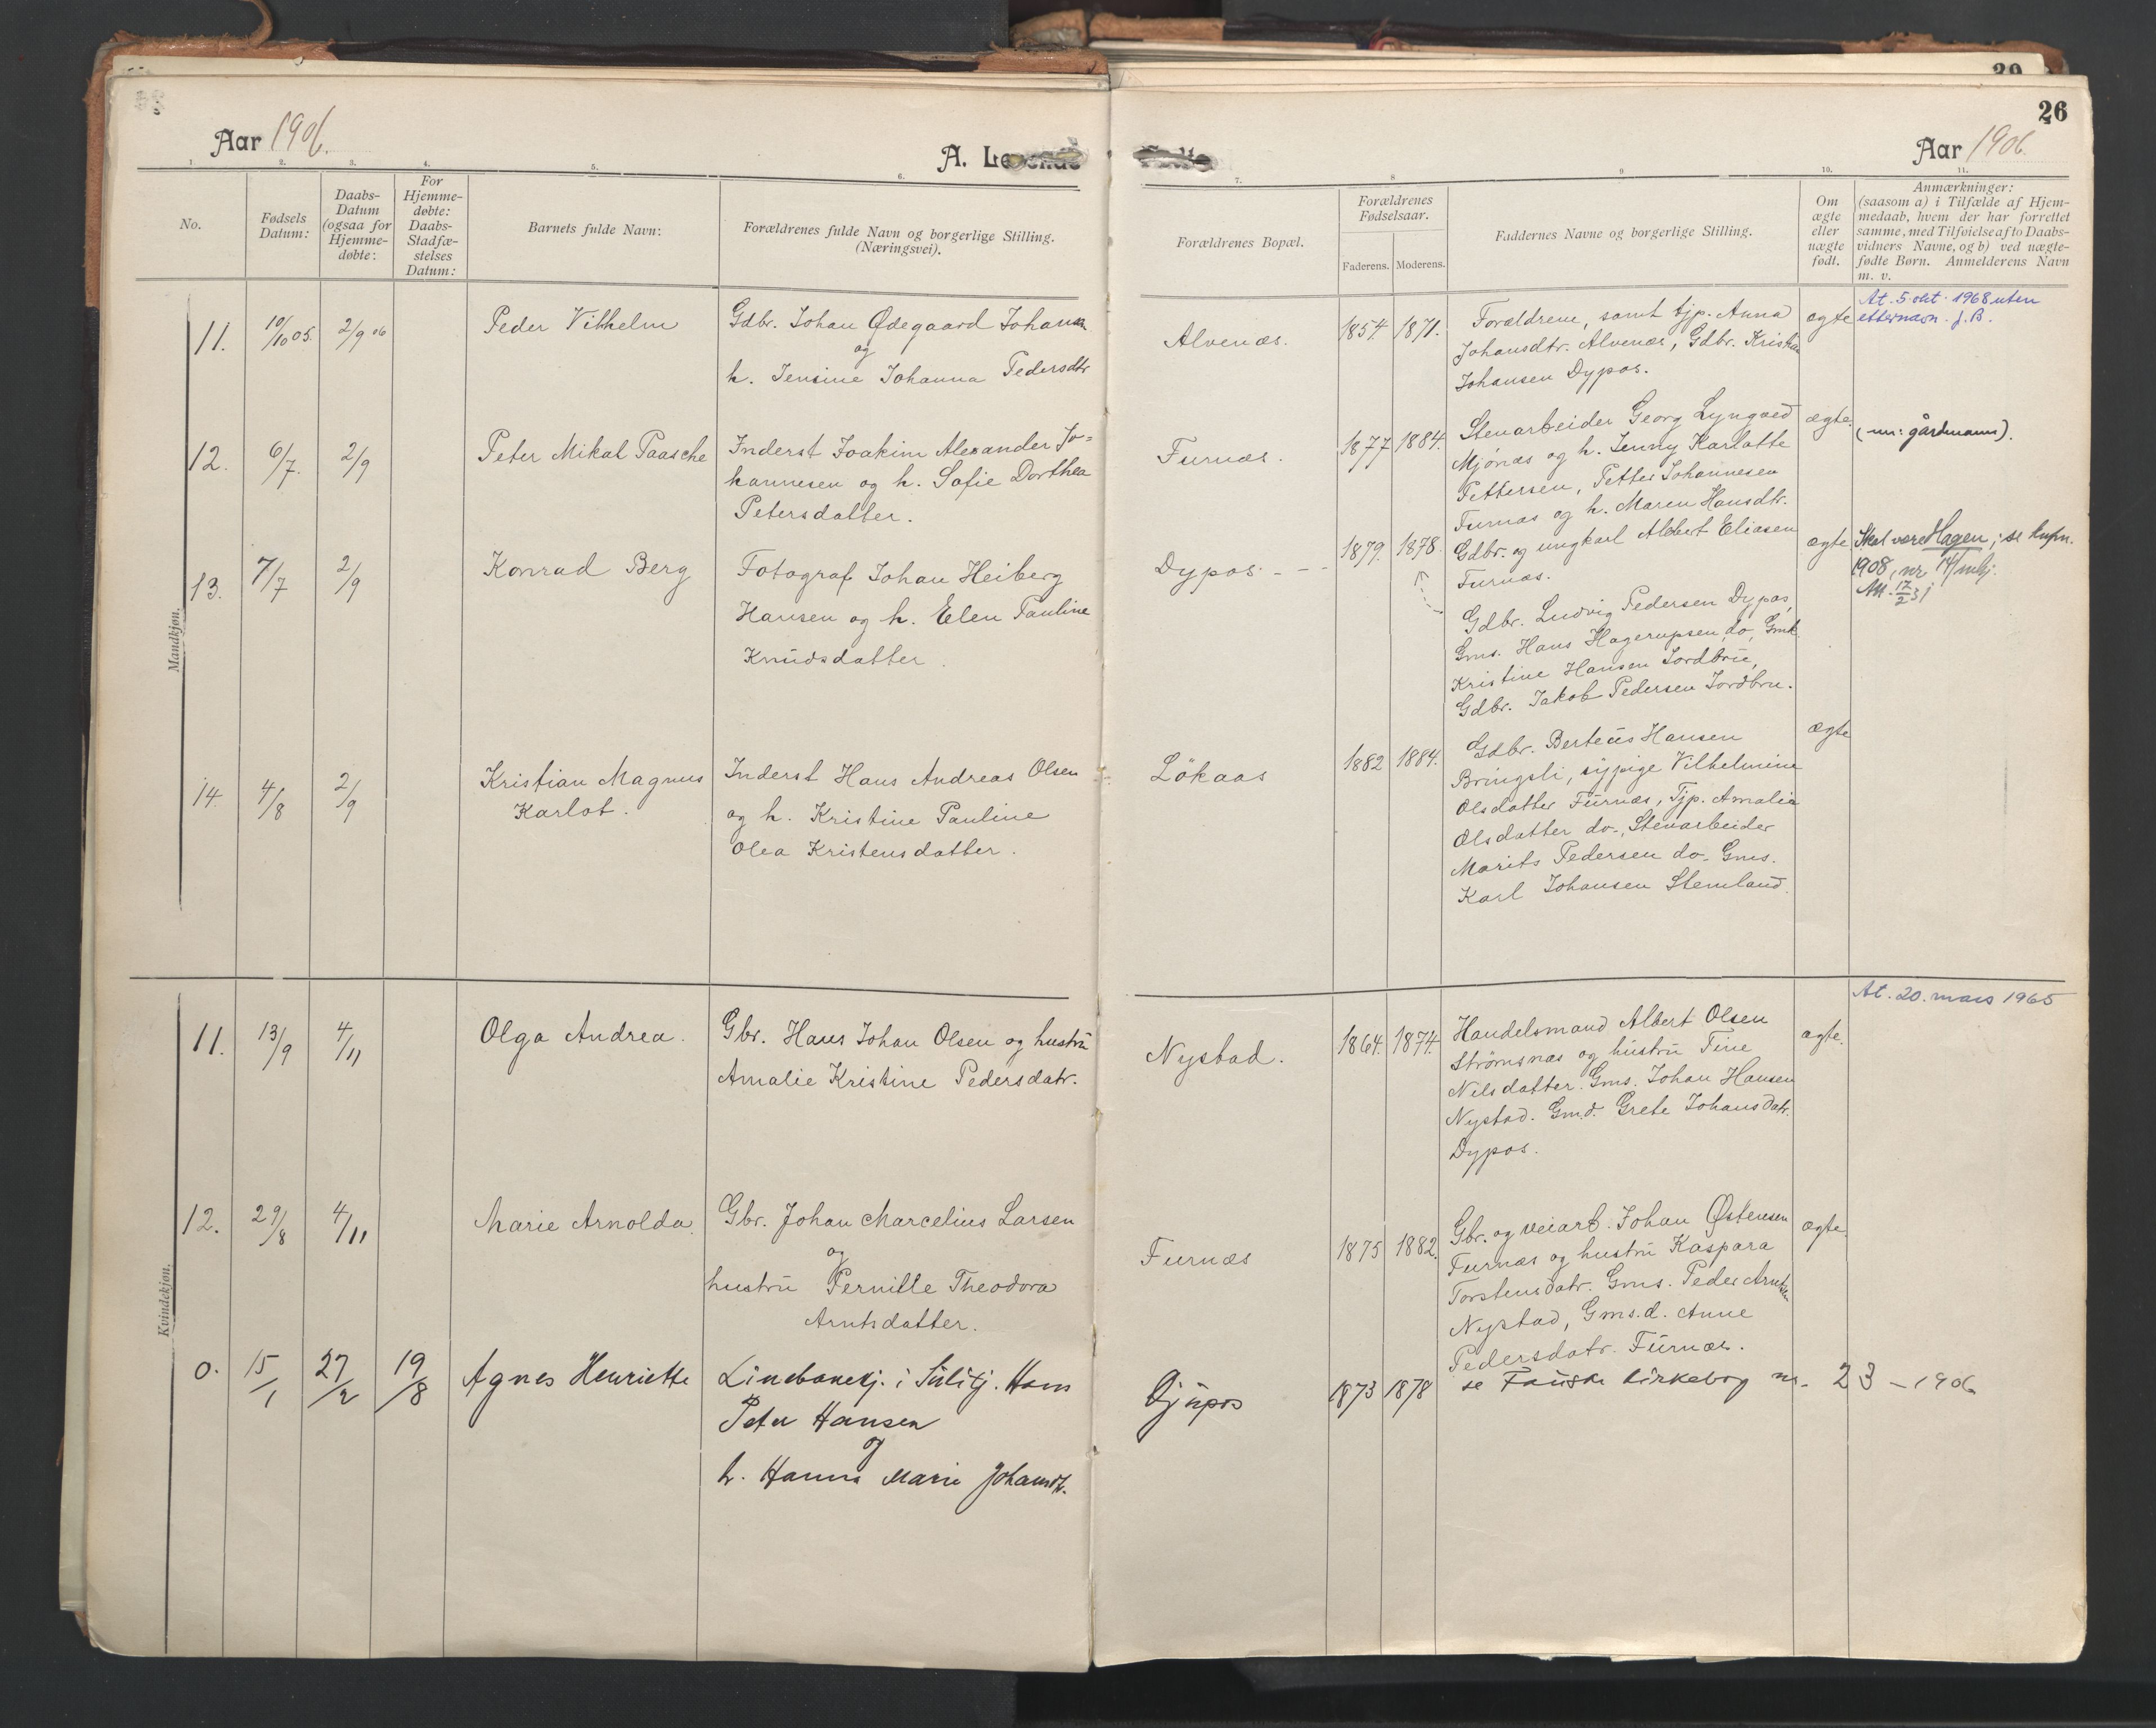 Aar 1906.
A. Levende
No.
Fødsels Datum:
Daabs-Datum (ogsaa for Hjemme-døbte:
For Hjemme-døbte: Daabs-Stadfæ-stelses Datum:
Barnets fulde Navn:
Forældrenes fulde Navn og borgerlige Stilling. (Næringsvei).
Mandkjøn.
11. 10/10 05. 2/9 06 Peder Vilhelm Gdbr. Johan Ødegaard Johansen
og
h. Jensine Johanna Pedersdtr
12. 6/7. 2/9 Peter Mikal Paasche Inderst Joakim Alexander Jo=
hannesen og h. Sofie Dorthea
Petersdatter.
13. 7/7 2/9 Konrad Berg Fotograf Johan Heiberg
Hansen og h. Elen Pauline
Knudsdatter.
14. 4/8 2/9 Kristian Magnus Inderst Hans Andreas Olsen
Karlot. og h. Kristine Pauline
Olea Kristensdatter.
Kvindekjøn.
11. 13/9 4/11 Olga Andrea. Gbr. Hans Johan Olsen og hustru
Amalie Kristine Pedersdatr.
12. 29/8 4/11 Marie Arnolda. Gbr. Johan Marcelius Larsen
og
hustru Pernille Theodora
Arntsdatter.
0. 15/1 27/2 19/8 Agnes Henriette Linebanearj. i Sulitj. Hans
Peter Hansen
og
h. Hanna Marie Johansdtr.
26
Aar 1906.
Forældrenes Bopæl.
Forældrenes Fødselsaar.
Faderens. Moderens.
Faddernes Navne og borgerlige Stilling.
Om ægte eller uægte født.
Anmærkninger:
(saasom a) i Tilfælde af Hjem-
medaab, hvem der har forrettet
samme, med Tilføielse af to Daabs-
vidners Navne, og b) ved uægte-
fødte Børn. Anmelderens Navn
m. v.
Alvenæs. 1854. 1871. Forældrene, samt tjp. Anna ægte At. 5 okt. 1968 uten
etternavn. J.B.
Johansdtr. Alvenæs, Gdbr. Kristian
Johansen Dypos.
Furnæs. 1877 1884. Stenarbeider Georg Lyngved ægte. (nu: gårdmann).
Mjönæs og h. Jenny Karlotte
Pettersen, Petter Johannesen
Furnæs og h. Maren Hansdtr.
Gdbr. og ungkarl Albert Eliasen
Furnæs.
Dypos - - - 1879. 1878. ægte Skal være Hagen; se
1908, nr 14/
At. 17/2 31
Gdbr. Ludvig Pedersen Dypos,
Gms. Hans Hagerupsen do, Gmk.
Kristine Hansen Jordbru,
Gdbr. Jakob Pedersen Jordbru.
Lökaas 1882 1884. Gdbr. Berteus Hansen ægte
Bringsli, sypige Vilhelmine
Olsdatter Furnæs, Tjp. Amalia
Olsdatter do., Stenarbeider
Marits Pedersen do. Gms.
Karl Johansen Stemland.
At. 20. mars 1965
Nystad. 1864. 1874. Handelsmand Albert Olsen ægte.
Strömsnæs og hustru Tine
Nilsdatter. Gms. Johan Hansen
Nystad. Gmd. Grete Johansdatr.
Dypos.
Furnæs 1875 1882. Gbr. og veiarb. Johan Østensen ægte.
Furnæs og hustru Kaspara
Torstensdatr. Gms. Peder Arntsen
Nystad, Gms.d. Anne
Pedersdatr. Furnæs.
Djupos 1873 1878 se Fauske kirkebog nr. 23 - 1906